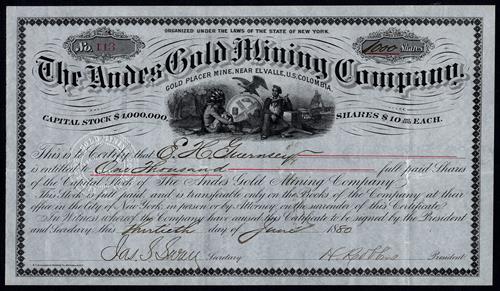 ORGANIZED UNDER THE LAWS OF THE STATE OF NEW YORK.
No. 113
1000 Shares
The Andes Gold Mining Company.
GOLD PLACER MINE, NEAR EL VALLE, U.S. COLOMBIA.
CAPITAL STOCK $4,000,000,
SHARES $10 EACH.
This is to Certify that E. H. Guernsey
is entitled to One thousand full paid Shares
of the Capital Stock of The Andes Gold Mining Company
This Stock is full paid and is transferable only on the Books of the Company at their
office in the City of New York, in person or by Attorney on the surrender of this Certificate.
In Witness whereof the Company have caused this Certificate to be signed by the President
and Secretary this thirtieth day of June 1880
Secretary
President